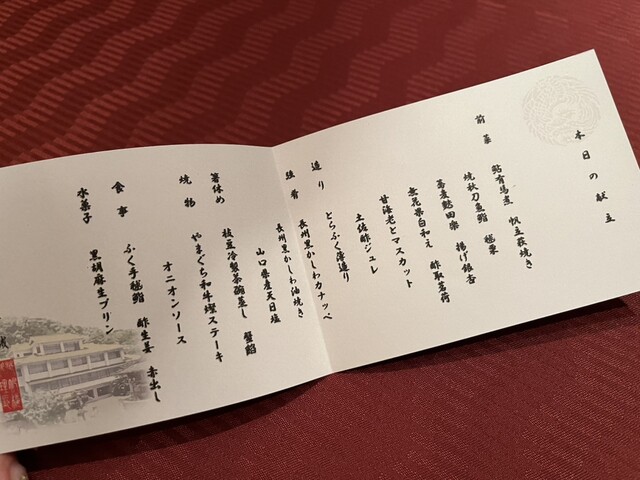 本日の献立
前菜 鮎有馬煮 帆立萩焼き
焼秋刀魚鮨 毬栗
蕎麦麩田楽 揚げ銀杏
無花果白和え 酢取茗荷
甘海老とマスカット
土佐酢ジュレ
造り とらふく薄造り
強肴 長州黒かしわカナッペ
長州黒かしわ油焼き
山口県産天日塩
箸休め 枝豆冷製茶碗蒸し 蟹餡
焼物 やまぐち和牛燦ステーキ
オニオンソース
食事 ふく手毬鮨 酢生姜 赤出し
水菓子 黒胡麻生プリン